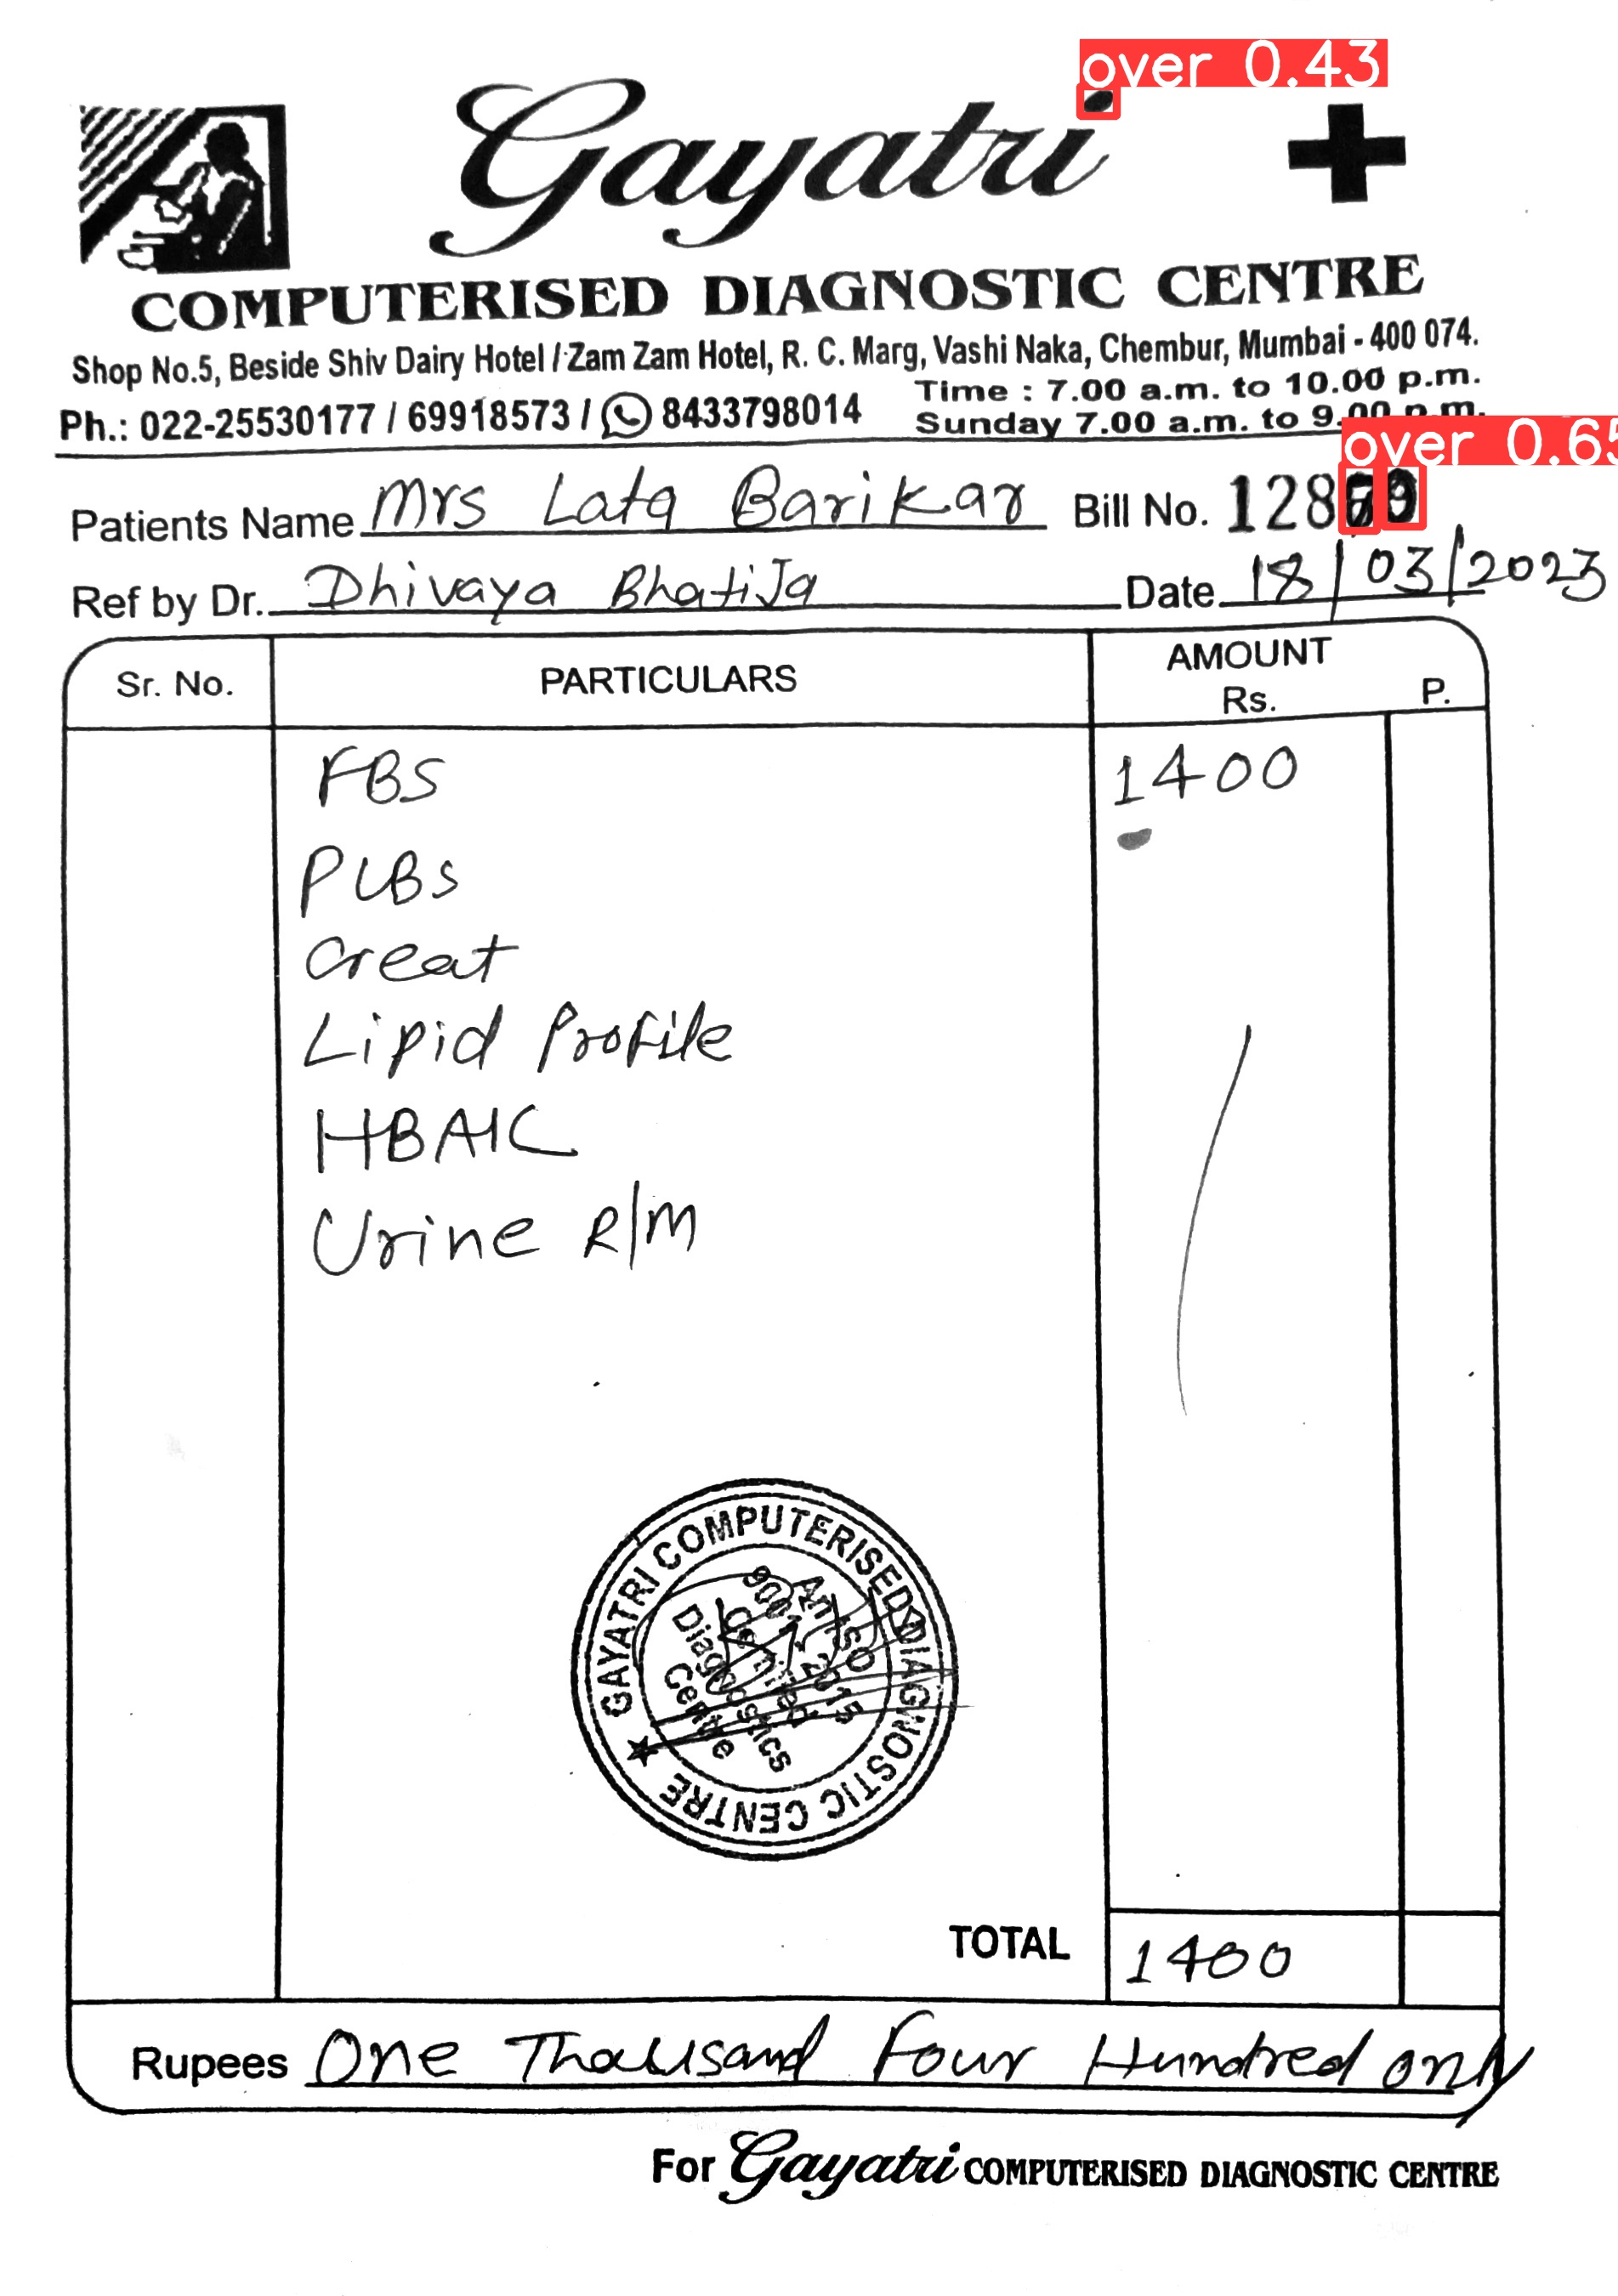 over 0.43
Gayatri
COMPUTERISED DIAGNOSTIC CENTRE
Shop No.5, Beside Shiv Dairy Hotel / Zam Zam Hotel, R. C. Marg, Vashi Naka, Chembur, Mumbai - 400 074.
Time : 7.00 a.m. to 10.00 p.m.
Ph.: 022-25530177 / 69918573 / 8433798014
Sunday 7.00 a.m. to 9.00 p.m.
over 0.65
Patients Name Mrs Lata Barikar Bill No.
Ref by Dr. Dhivaya Bhatija Date 18/03/2023
Sr. No. PARTICULARS AMOUNT
Rs. P.
FBS 1400
PLBS
Creat
Lipid Profile
HBA1C
Urine R/M
GAYATRI COMPUTERISED DIAGNOSTIC CENTRE ★
An ISO
9001:2015
Certified
Diagnostics
Centre
TOTAL 1400
Rupees One Thousand Four Hundred only
For Gayatri COMPUTERISED DIAGNOSTIC CENTRE